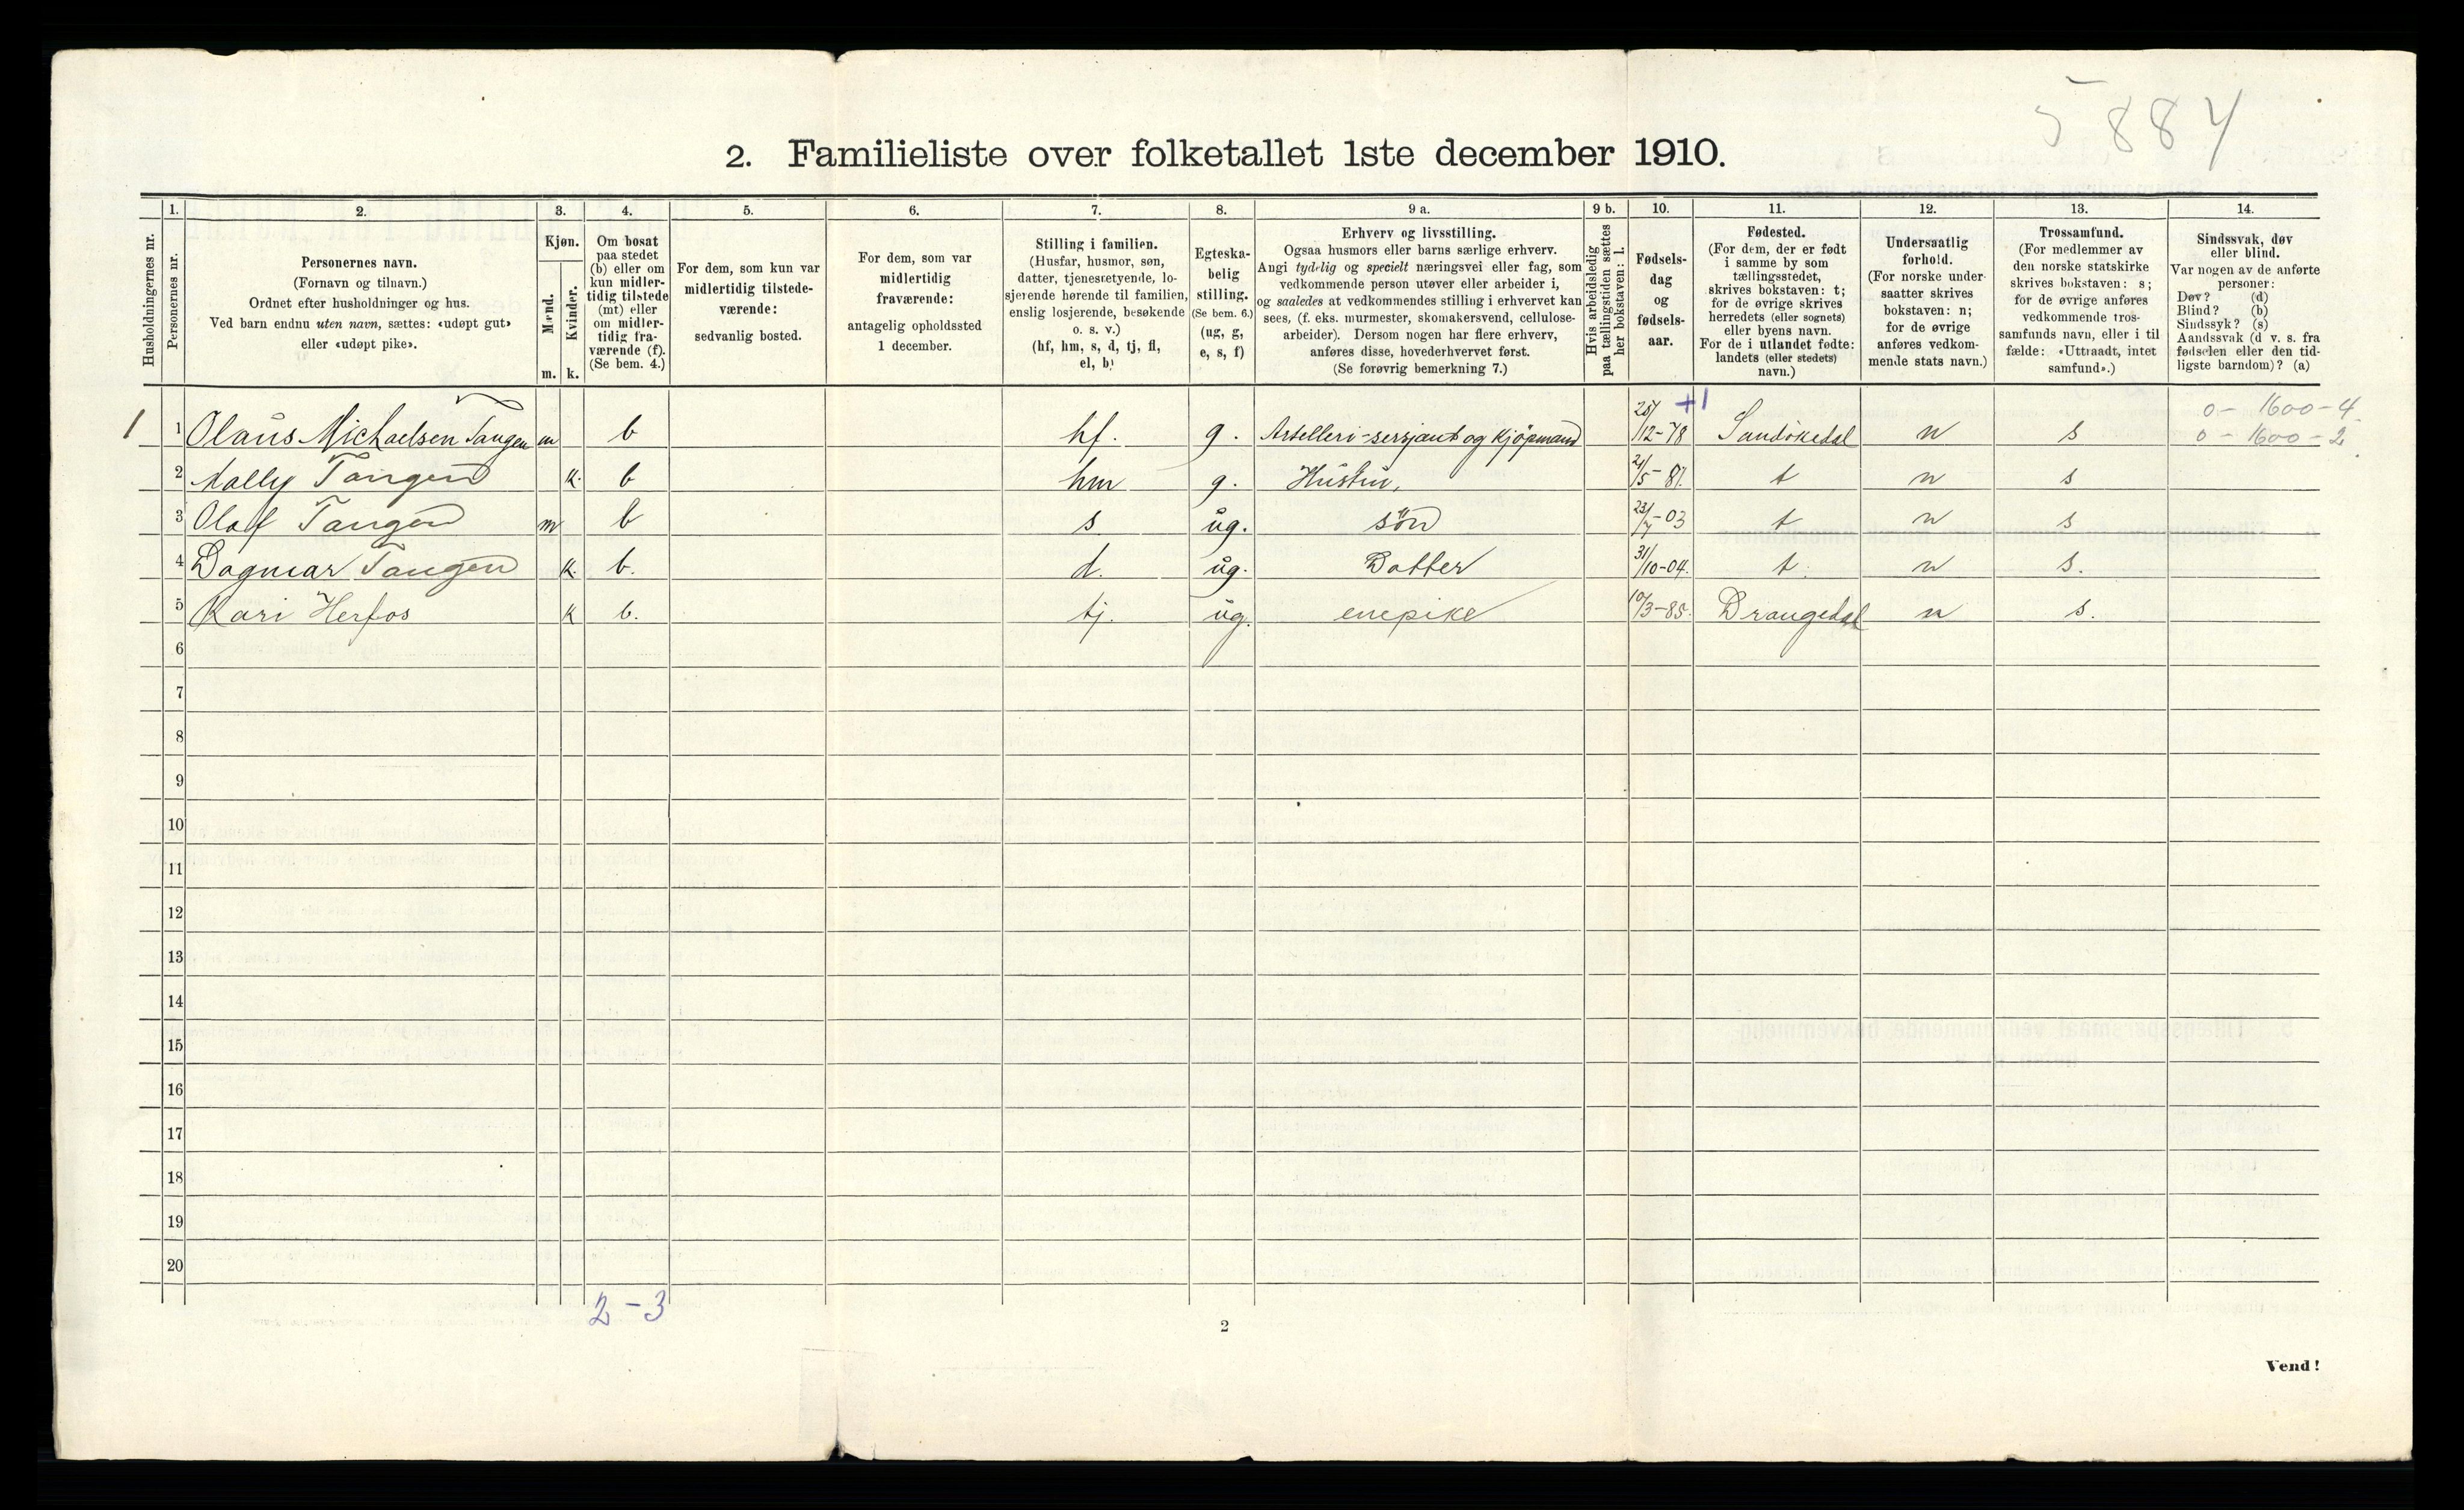 5884
2. Familieliste over folketallet 1ste december 1910.
Husholdningernes nr.
1.
Personernes nr.
2.
Personernes navn.
(Fornavn og tilnavn.)
Ordnet efter husholdninger og hus.
Ved barn endnu uten navn, sættes: «udøpt gut»
eller «udøpt pike».
3.
Kjøn.
Mænd.
Kvinder.
m. k.
4.
Om bosat
paa stedet
(b) eller om
kun midler-
tidig tilstede
(mt) eller
om midler-
tidig fra-
værende (f).
(Se bem. 4.)
5.
For dem, som kun var
midlertidig tilstede-
værende:
sedvanlig bosted.
6.
For dem, som var
midlertidig
fraværende:
antagelig opholdssted
1 december.
7.
Stilling i familien.
(Husfar, husmor, søn,
datter, tjenestetyende, lo-
sjerende hørende til familien,
enslig losjerende, besøkende
o. s. v.)
(hf, hm, s, d, tj, fl,
el, b)
8.
Egteska-
belig
stilling.
(Se bem. 6.)
(ug, g,
e, s, f)
9 a.
Erhverv og livsstilling.
Ogsaa husmors eller barns særlige erhverv.
Angi tydelig og specielt næringsvei eller fag, som
vedkommende person utøver eller arbeider i,
og saaledes at vedkommendes stilling i erhvervet kan
sees, (f. eks. murmester, skomakersvend, cellulose-
arbeider). Dersom nogen har flere erhverv,
anføres disse, hovederhvervet først.
(Se forøvrig bemerkning 7.)
9 b.
Hvis arbeidsledig
paa tællingstiden sættes
her bokstaven: l.
10.
Fødsels-
dag
og
fødsels-
aar.
11.
Fødested.
(For dem, der er født
i samme by som
tællingsstedet,
skrives bokstaven: t;
for de øvrige skrives
herredets (eller sognets)
eller byens navn.
For de i utlandet fødte:
landets (eller stedets)
navn.)
12.
Undersaatlig
forhold.
(For norske under-
saatter skrives
bokstaven: n;
for de øvrige
anføres vedkom-
mende stats navn.)
13.
Trossamfund.
(For medlemmer av
den norske statskirke
skrives bokstaven: s;
for de øvrige anføres
vedkommende tros-
samfunds navn, eller i til
fælde: «Uttraadt, intet
samfund».)
14.
Sindssvak, døv
eller blind.
Var nogen av de anførte
personer:
Døv? (d)
Blind? (b)
Sindssyk? (s)
Aandssvak (d v. s. fra
fødselen eller den tid-
ligste barndom)? (a)
+1 0 - 1600 - 4
1 1 Olaus Michaelsen Tangen m b hf. g. Artelleri-sersjant og Kjøpmand 25/12-78 Sandökedal n s 0 - 1600 - 2
2 Mally Tangen k. b hm g. Hustru, 21/5-81. t n s
3 Olaf Tangen m b s ug. sön 23/7-03 t n s
4 Dagmar Tangen k. b. d. ug. Datter 31/10-04. t. n s.
5 Kari Herfos k b. tj. ug. enepike 10/3-85. Drangedal n s.
6
7
8
9
10
11
12
13
14
15
16
17
18
19
20
2-3
2
Vend!